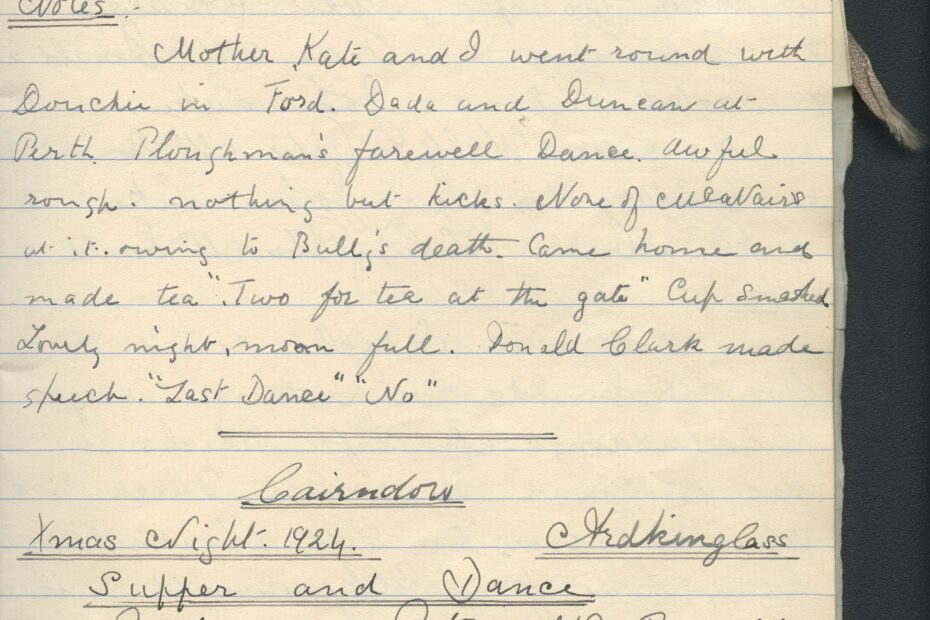 Notes :-
Mother, Kate and I went round with
Douchie in Ford. Dada and Duncan at
Perth. Ploughman's farewell Dance. Awful
rough. nothing but kicks. None of McNairs
at it. owing to Bully's death. Came home and
made tea". Two for tea at the gate" Cup smashed
Lovely night, moon full. Donald Clark made
speech. "Last Dance" "No"
Cairndow
Xmas Night. 1924. Ardkinglass
Supper and Dance